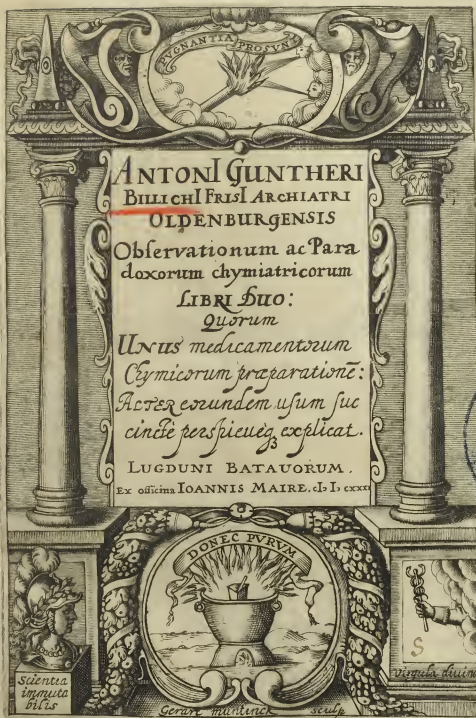 PUGNANTIA PROSUNT
ANTONI GUNTHERI
BILLICHI FRISI ARCHIATRI
OLDENBURGENSIS
Observationum ac Para
doxorum chymiatricorum
LIBRI DUO:
Quorum
UNUS medicamentorum
Chymicorum præparationē:
ALTER eorundem usum suc
cinctè perspicueq3 explicat.
LUGDUNI BATAVORUM.
Ex officina IOANNIS MAIRE. cIↃ IↃ cxxxi
DONEC PVRVM
Scientia
immuta
bilis
S
virgula divina
Gerart muntinck sculp